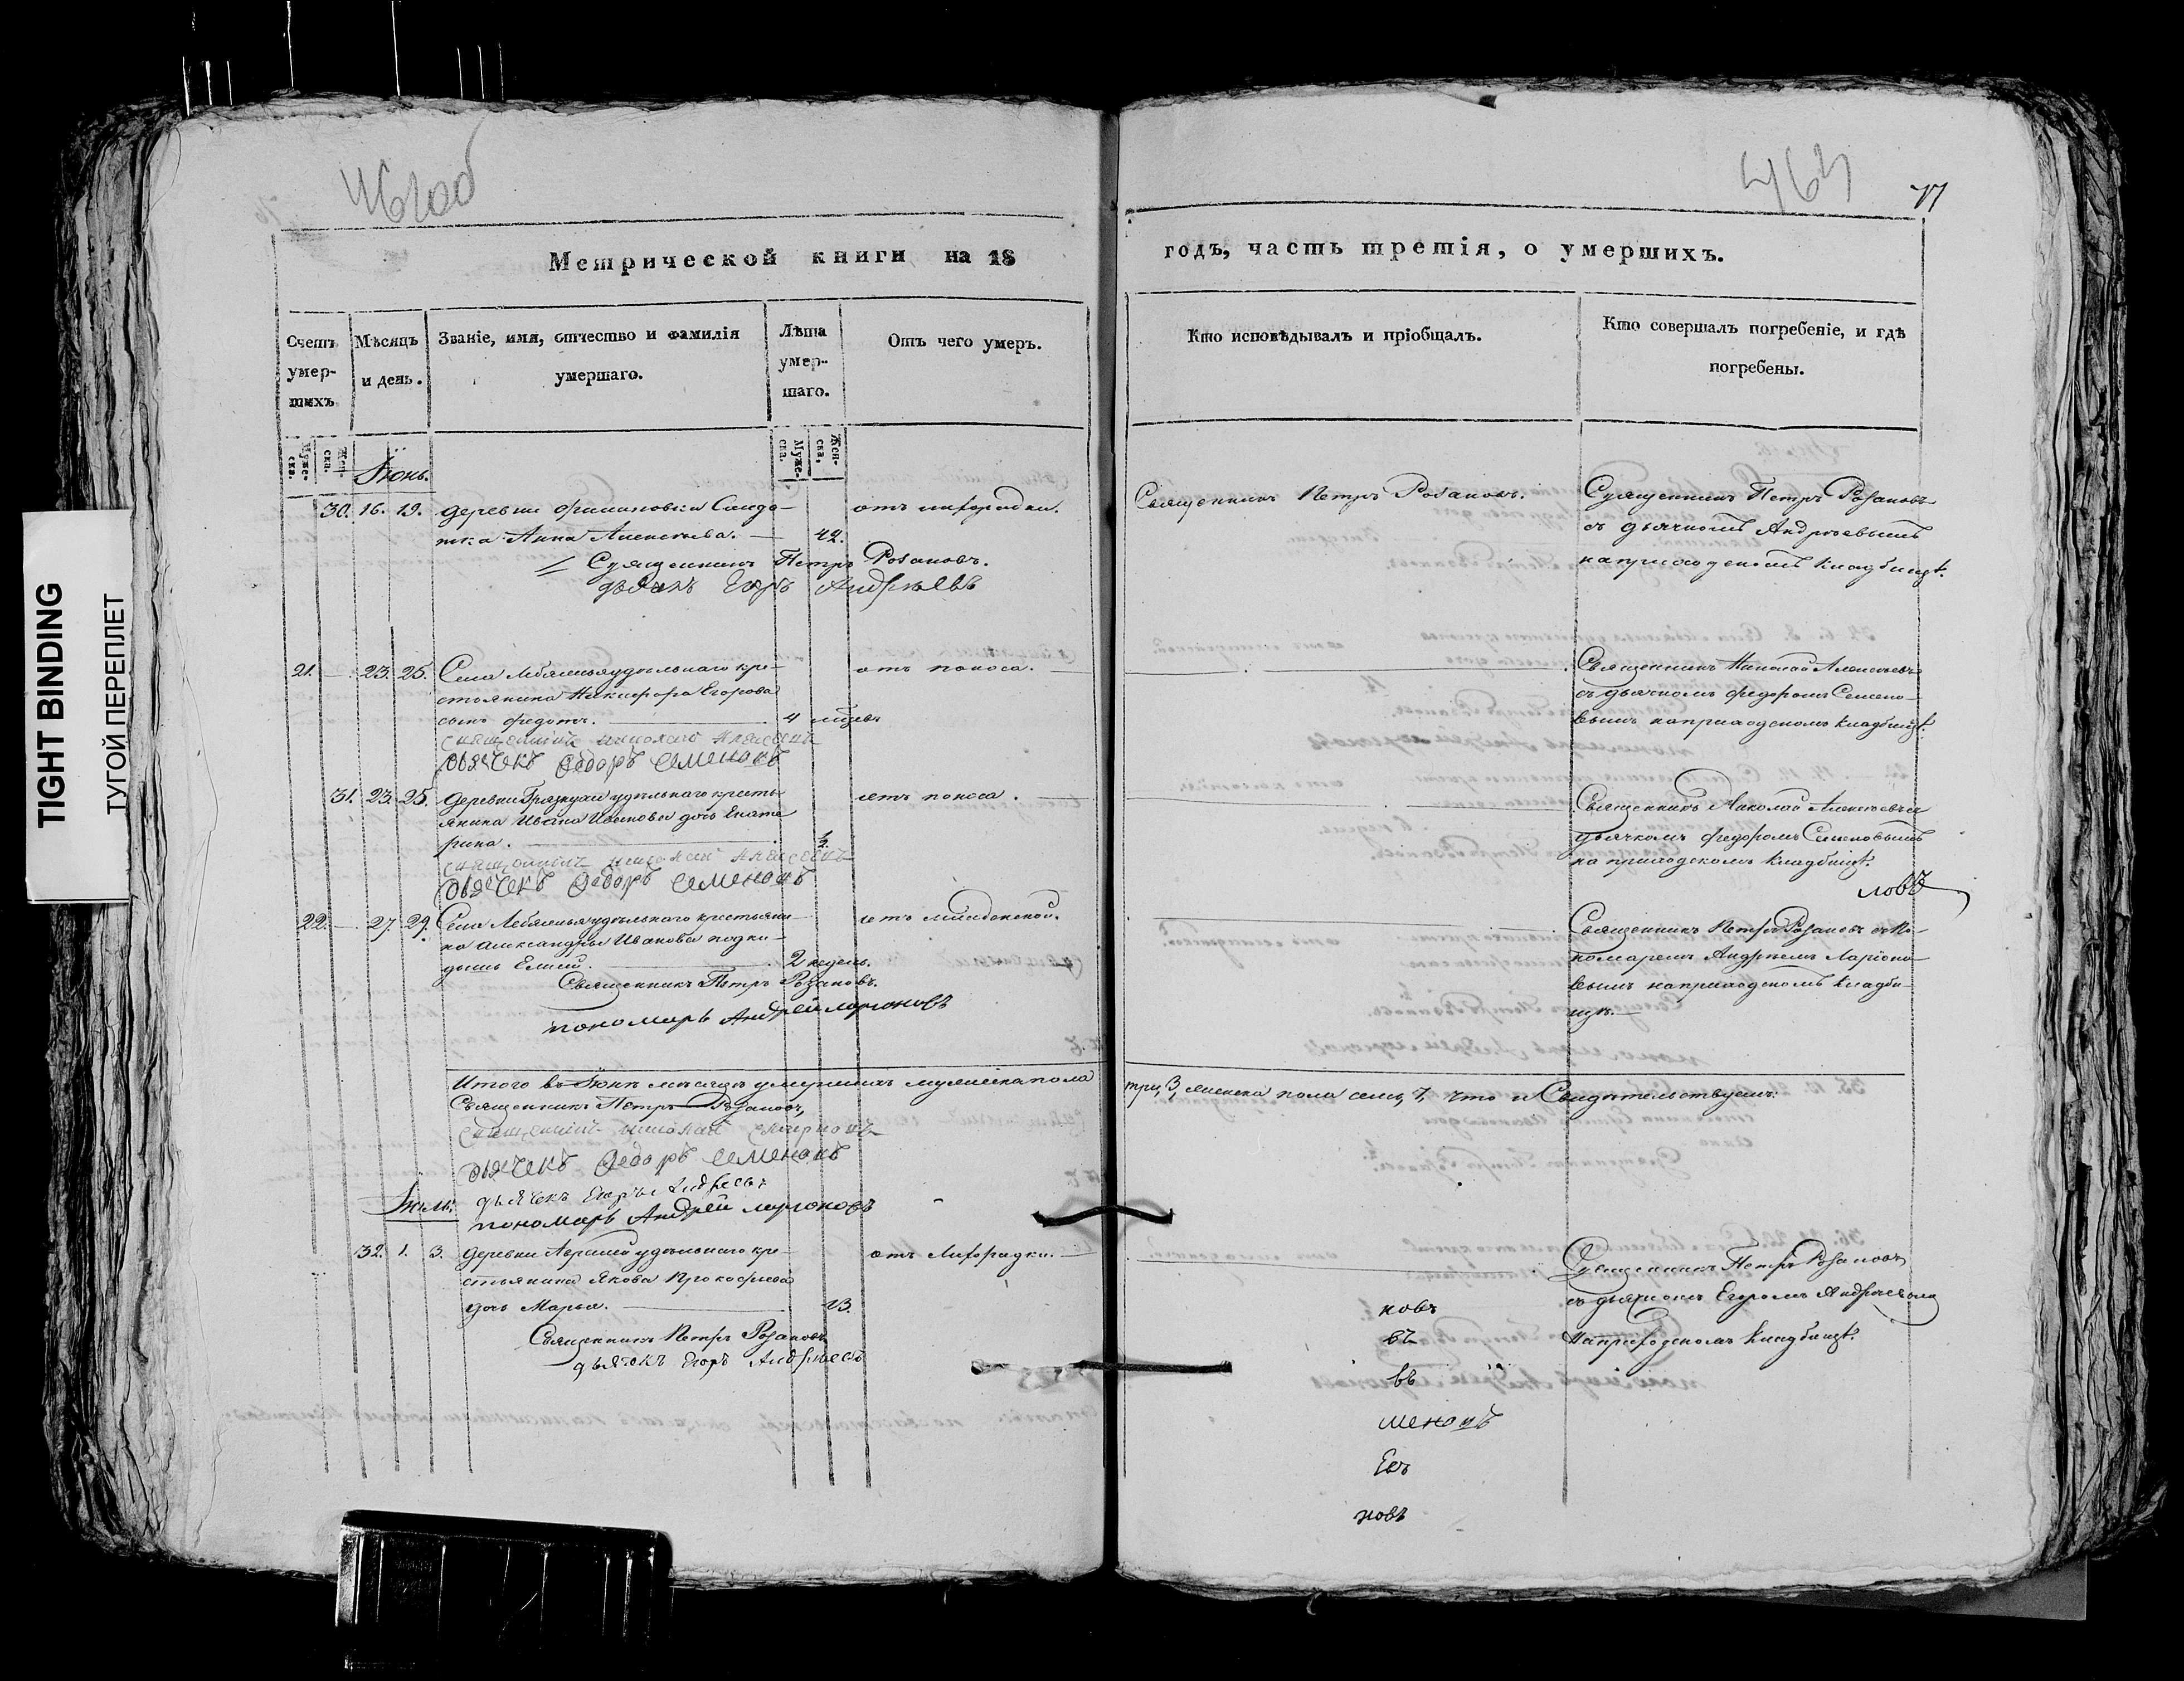 TIGHT BINDING
ТУГОЙ ПЕРЕПЛЕТ
462об
463
77
Метрической книги на 18
годъ, часть третія, о умершихъ.
Счетъ умер-
шихъ
Мѣсяцъ
и день.
Званіе, имя, отчество и фамилія
умершаго.
Лѣта
умер-
шаго.
Отъ чего умеръ.
Кто исповѣдывалъ и пріобщалъ.
Кто совершалъ погребеніе, и гдѣ
погребены.
Муже-
ска.
Жен-
ска.
Муже-
ска.
Жен-
ска,
Іюнь.
30. 16. 19. деревни Солда-
тка Анна Алексѣева. — 42.
отъ лихорадки.
Священникъ Петръ Розановъ.
Священникъ Петръ Розановъ
съ дьячкомъ Андрѣевымъ
на приходскомъ кладбищѣ.
Священникъ Петръ Розановъ.
дьячекъ Егоръ Андрѣевъ
21. — 23. 25. Села Лебяжья удѣльнаго кре-
стьянина Никифора Егорова
сынъ Федотъ. — 4 мѣсяц.
отъ поноса.
Священникъ Николай Алексѣевъ
съ дьячкомъ Федоромъ Семено-
вымъ на приходскомъ кладбищѣ.
священникъ николай
дьячекъ Федоръ Семеновъ
31. 23. 25. деревни Грязнухи удѣльнаго кресть-
янина Ивана Иванова дочь Екате-
рина. — ½.
отъ поноса.
Священникъ Николай Алексѣевъ съ
дьячкомъ Федоромъ Семеновымъ
на приходскомъ кладбищѣ.
священникъ николай
дьячекъ Федоръ Семеновъ
ловъ
22. — 27. 29. Села Лебяжья удѣльнаго крестьяни-
на Александра Иванова подки-
дышъ Елисей. — 2 недель.
отъ младенской.
Священникъ Петръ Розановъ съ По-
номаремъ Андрѣемъ Ларіоно-
вымъ на приходскомъ кладби-
щѣ.—
Священникъ Петръ Розановъ.
пономарь Андрей Ларионовъ
Итого въ Іюнѣ мѣсяцѣ умершихъ мужеска пола
три, 3, женска пола семь, 7, что и Свидѣтельствуемъ:
Священникъ Петръ Розановъ,
священникъ николай
дьячекъ Федоръ Семеновъ
дьячекъ Егоръ Андрѣевъ
пономарь Андрей Ларионовъ
Іюль.
32. 1. 3. деревни удѣльнаго кре-
стьянина Якова Прокофьева
дочь Марья. — 23.
отъ Лихорадки. —
Священникъ Петръ Розановъ
съ дьячкомъ Егоромъ Андрѣевымъ
На приходскомъ кладбищѣ.
Священникъ Петръ Розановъ
дьячокъ Егоръ Андрѣевъ
новъ
въ
въ
меновъ
Евъ
новъ